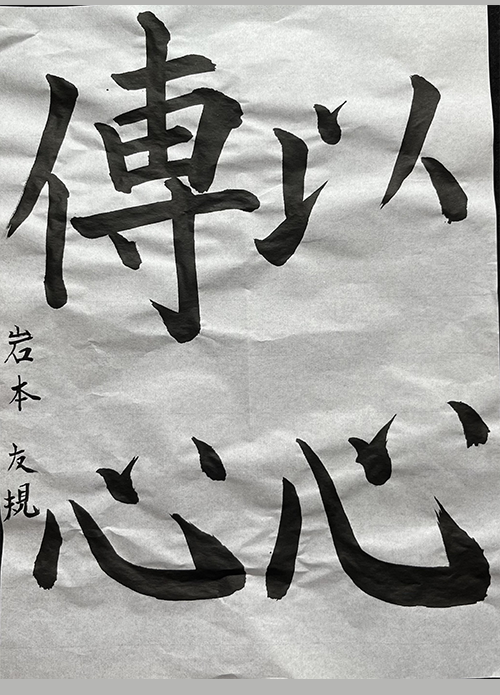 以心
傳心
岩本友規